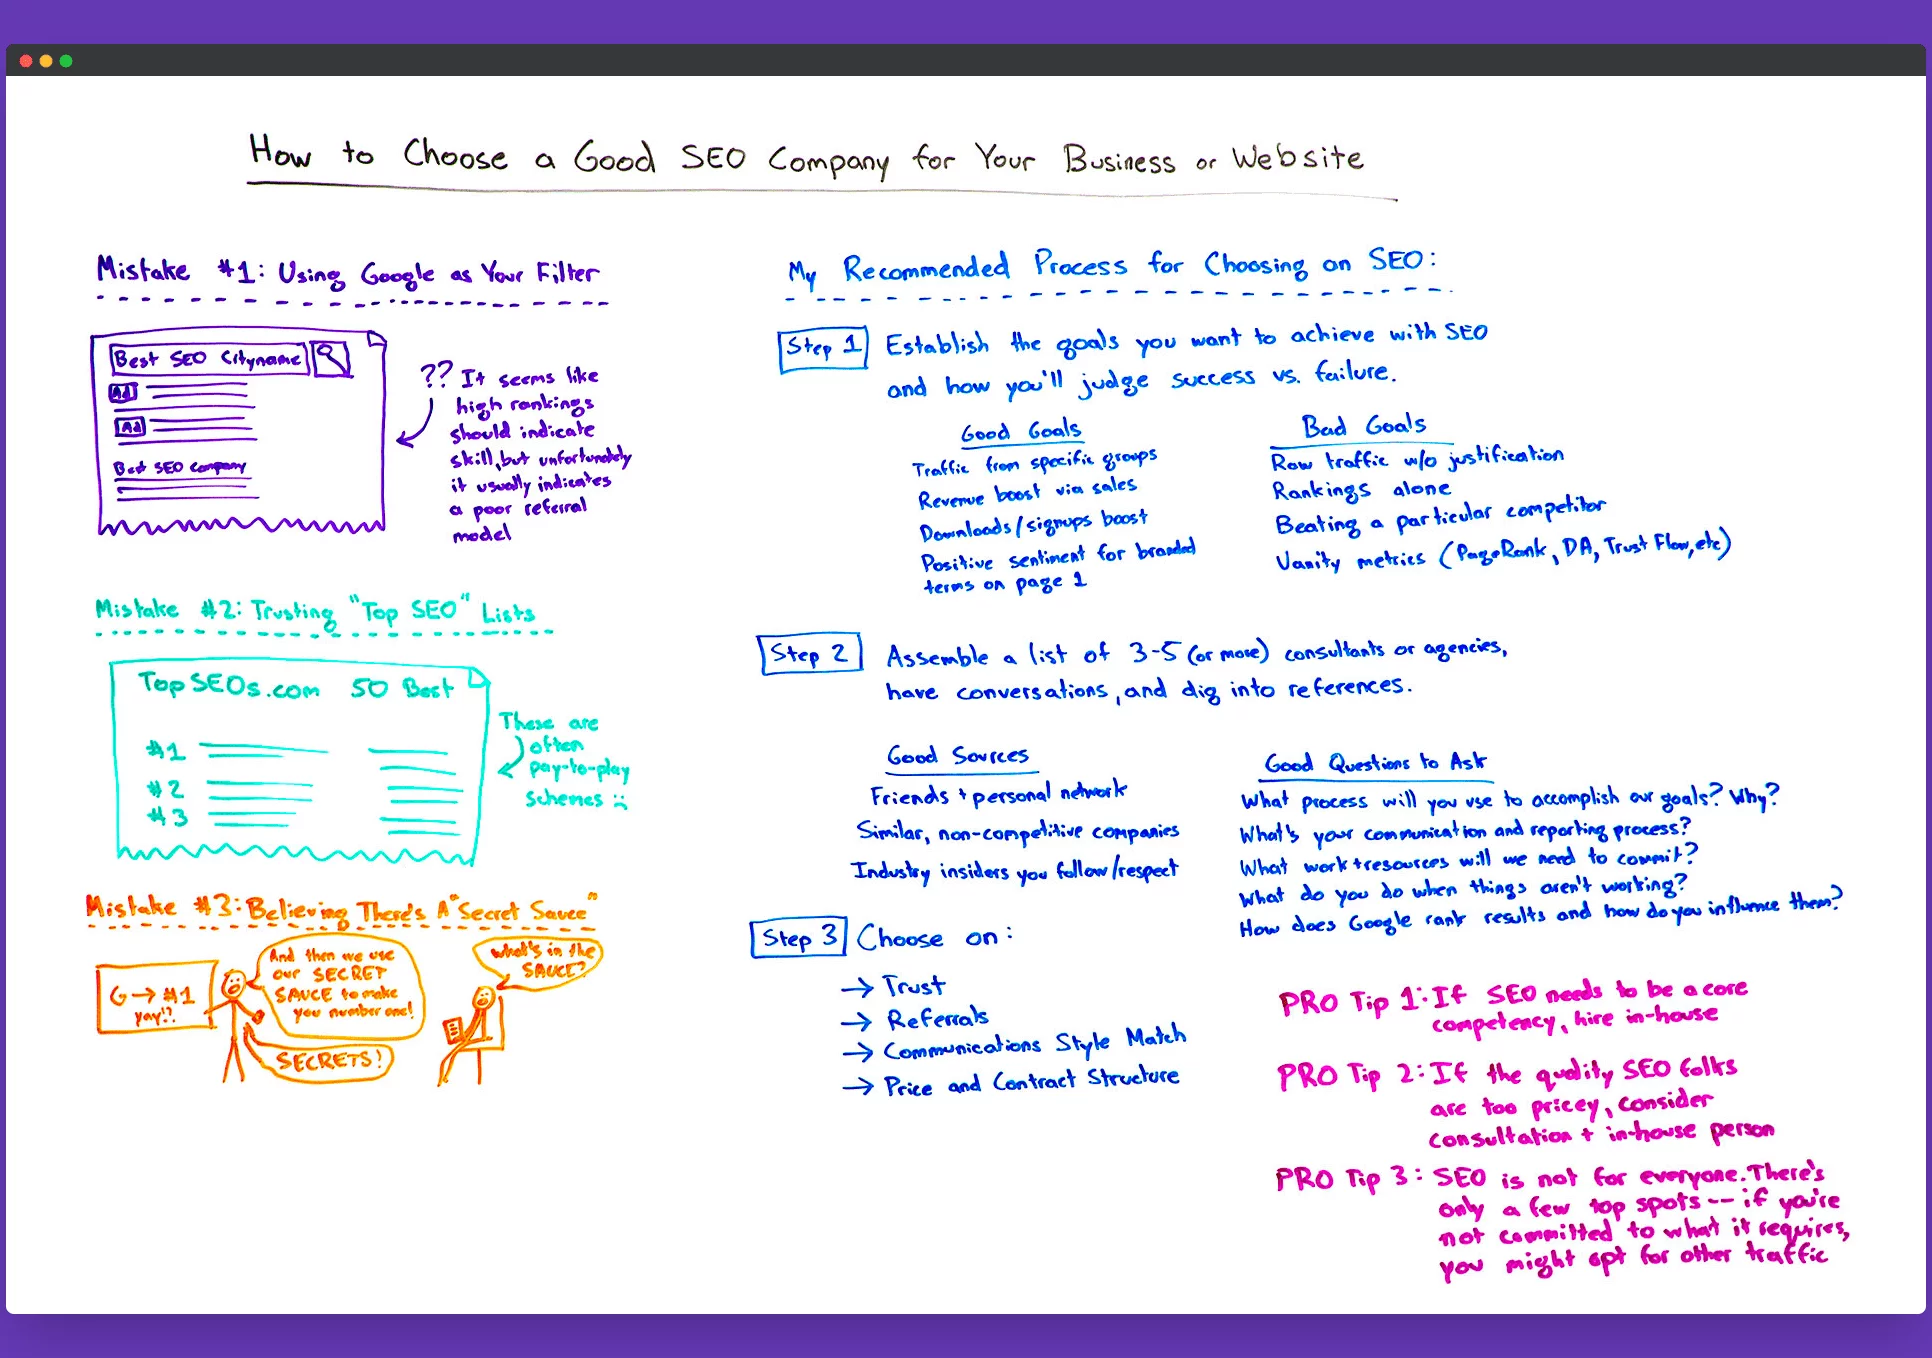 How to Choose a Good SEO Company for Your Business or Website
Mistake #1: Using Google as Your Filter
Best SEO Cityname
Ad
Ad
Best SEO Company
?? It seems like
high rankings
should indicate
skill, but unfortunately
it usually indicates
a poor referral
model
Mistake #2: Trusting "Top SEO" Lists
TopSEOs.com 50 Best
#1
#2
#3
These are
often
pay-to-play
schemes :(
Mistake #3: Believing There's A "Secret Sauce"
G → #1
yay!?
And then we use
our SECRET
SAUCE to make
you number one!
SECRETS!
What's in the
SAUCE?
My Recommended Process for Choosing an SEO:
Step 1 Establish the goals you want to achieve with SEO
and how you'll judge success vs. failure.
Good Goals
Traffic from specific groups
Revenue boost via sales
Downloads/signups boost
Positive sentiment for branded
terms on page 1
Bad Goals
Raw traffic w/o justification
Rankings alone
Beating a particular competitor
Vanity metrics (PageRank, DA, Trust Flow, etc)
Step 2 Assemble a list of 3-5 (or more) consultants or agencies,
have conversations, and dig into references.
Good Sources
Friends + personal network
Similar, non-competitive companies
Industry insiders you follow/respect
Good Questions to Ask
What process will you use to accomplish our goals? Why?
What's your communication and reporting process?
What work + resources will we need to commit?
What do you do when things aren't working?
How does Google rank results and how do you influence them?
Step 3 Choose on:
→ Trust
→ Referrals
→ Communications Style Match
→ Price and Contract Structure
PRO Tip 1: If SEO needs to be a core
competency, hire in-house
PRO Tip 2: If the quality SEO folks
are too pricey, consider
consultation + in-house person
PRO Tip 3: SEO is not for everyone. There's
only a few top spots -- if you're
not committed to what it requires,
you might opt for other traffic